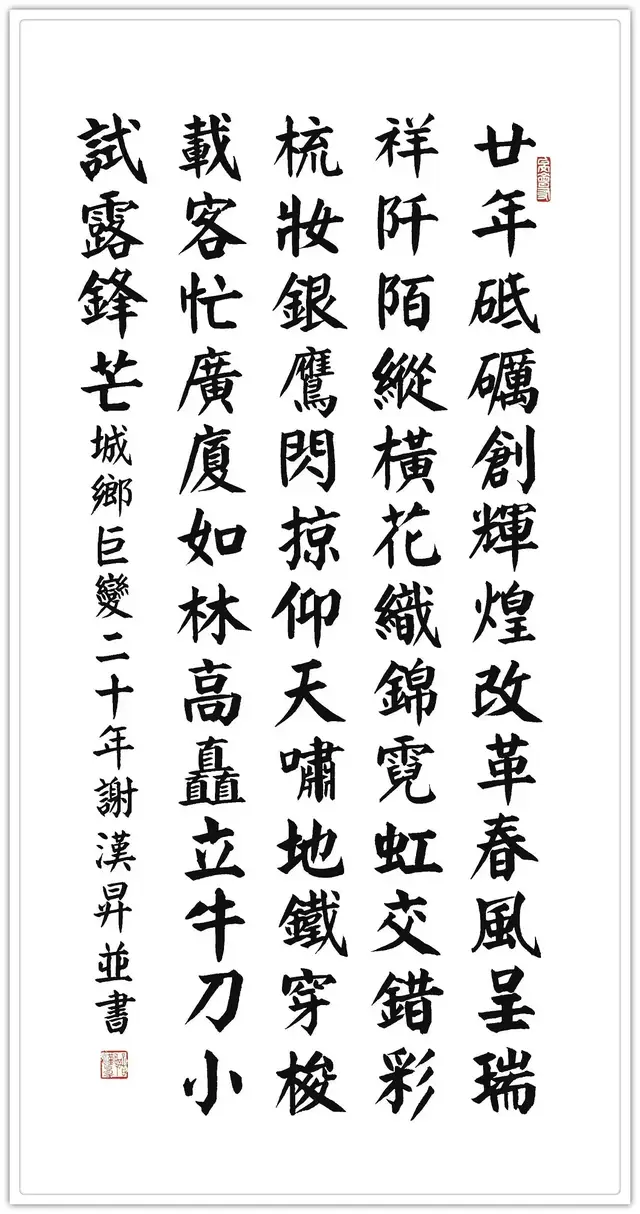 廿年砥礪創輝煌改革春風呈瑞
祥阡陌縱橫花織錦霓虹交錯彩
梳妝銀鷹閃掠仰天嘯地鐵穿梭
載客忙廣廈如林高矗立牛刀小
試露鋒芒城鄉巨變二十年謝漢昇並書